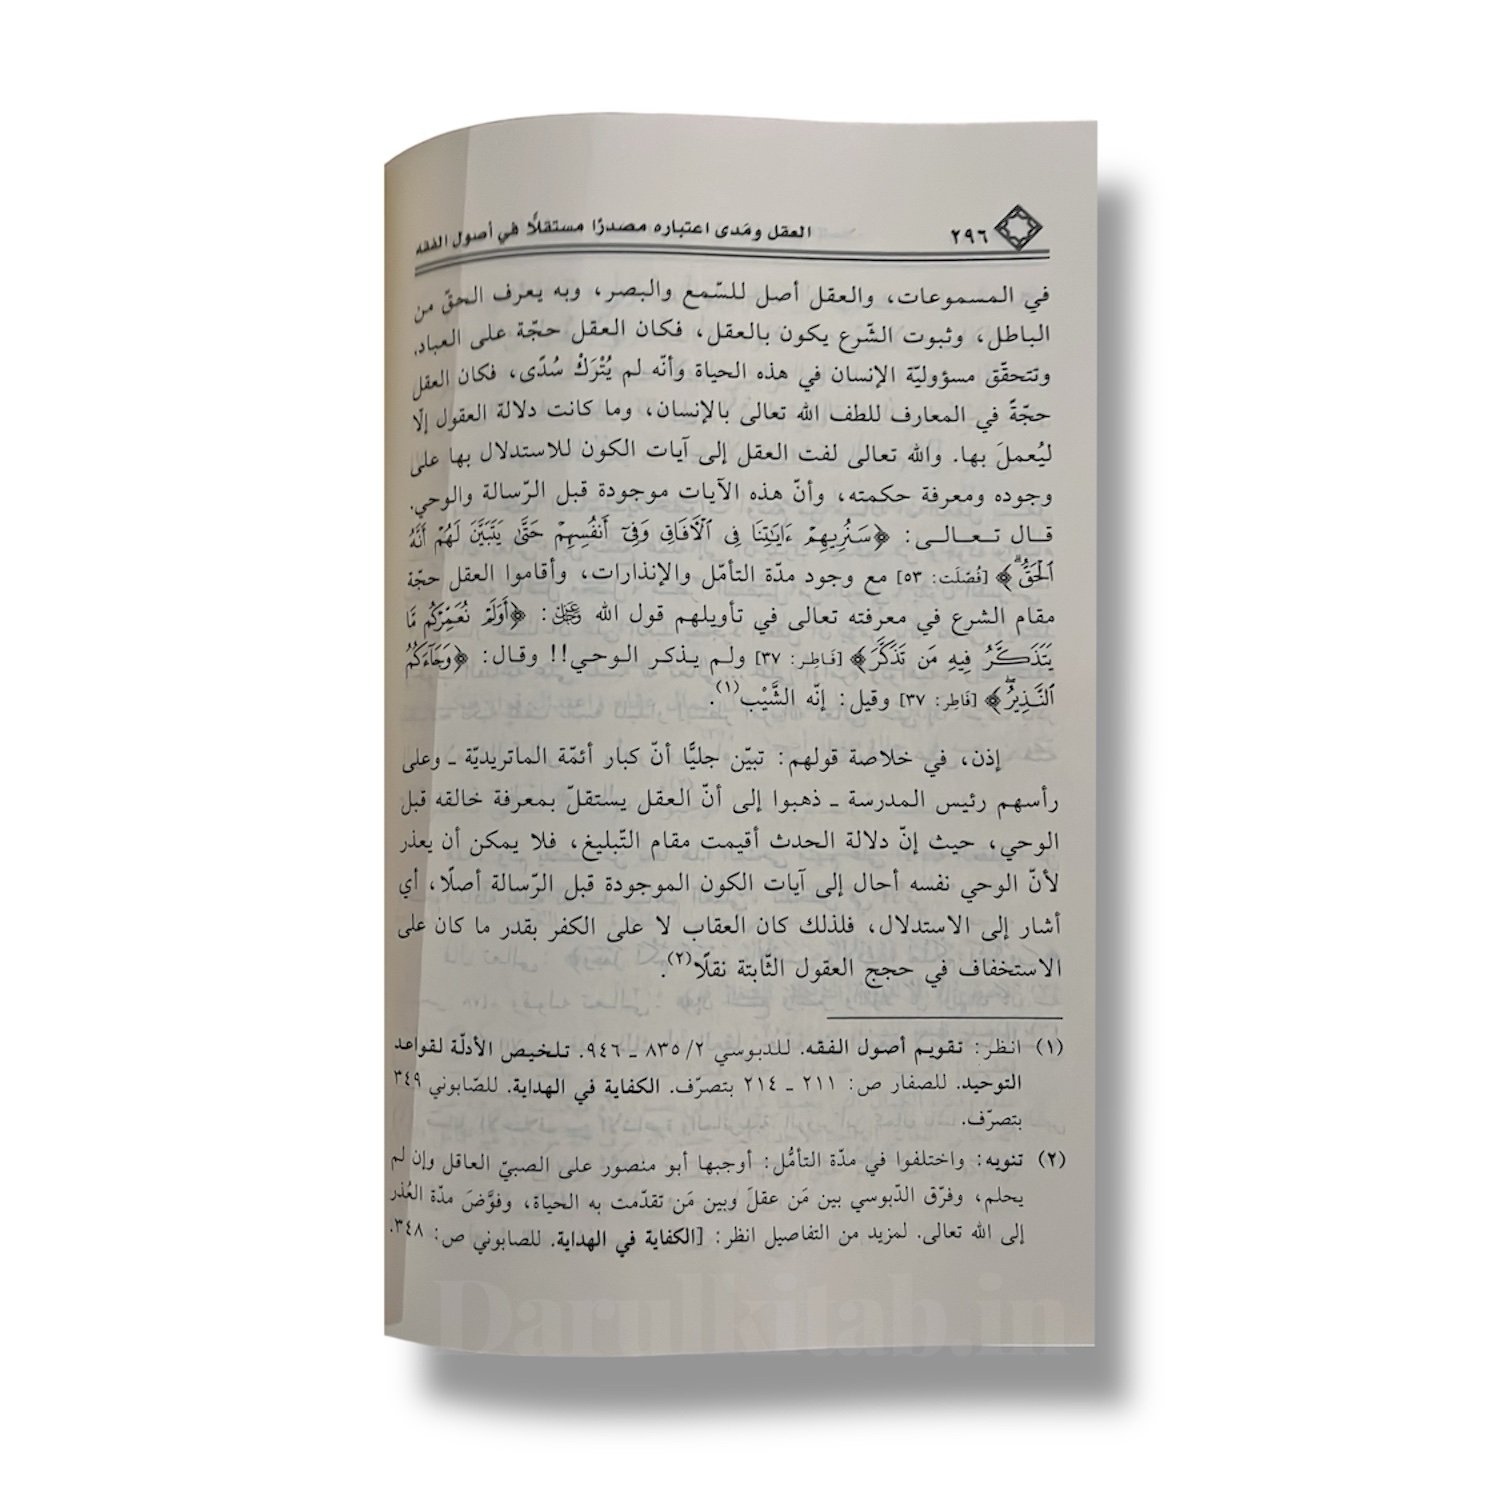 ٢٩٦ العقل ومَدى اعتباره مصدرًا مستقلًّا في أصول الفقه
في المسموعات، والعقل أصل للسّمع والبصر، وبه يعرف الحقّ من
الباطل، وثبوت الشّرع يكون بالعقل، فكان العقل حجّة على العباد.
وتتحقّق مسؤوليّة الإنسان في هذه الحياة وأنّه لم يُتْرَكْ سُدًى، فكان العقل
حجّةً في المعارف للطف الله تعالى بالإنسان، وما كانت دلالة العقول إلّا
ليُعملَ بها. والله تعالى لفت العقل إلى آيات الكون للاستدلال بها على
وجوده ومعرفة حكمته، وأنّ هذه الآيات موجودة قبل الرّسالة والوحي.
قـال تـعـالـى: ﴿سَنُرِيهِمْ ءَايَٰتِنَا فِى ٱلْأٓفَاقِ وَفِىٓ أَنفُسِهِمْ حَتَّىٰ يَتَبَيَّنَ لَهُمْ أَنَّهُ
ٱلْحَقُّ ۗ﴾ [فُصّلَت: ٥٣] مع وجود مدّة التأمّل والإنذارات، وأقاموا العقل حجّة
مقام الشرع في معرفته تعالى في تأويلهم قول الله ﷿: ﴿أَوَلَمْ نُعَمِّرْكُم مَّا
يَتَذَكَّرُ فِيهِ مَن تَذَكَّرَ﴾ [فَاطِر: ٣٧] ولـم يـذكر الـوحي!! وقـال: ﴿وَجَآءَكُمُ
ٱلنَّذِيرُ ۖ﴾ [فَاطِر: ٣٧] وقيل: إنّه الشَّيْب(١).
إذن، في خلاصة قولهم: تبيّن جليًّا أنّ كبار أئمّة الماتريديّة ـ وعلى
رأسهم رئيس المدرسة ـ ذهبوا إلى أنّ العقل يستقلّ بمعرفة خالقه قبل
الوحي، حيث إنّ دلالة الحدث أقيمت مقام التّبليغ، فلا يمكن أن يعذر
لأنّ الوحي نفسه أحال إلى آيات الكون الموجودة قبل الرّسالة أصلًا، أي
أشار إلى الاستدلال، فلذلك كان العقاب لا على الكفر بقدر ما كان على
الاستخفاف في حجج العقول الثّابتة نقلًا(٢).
(١) انظر: تقويم أصول الفقه. للدبوسي ٢/ ٨٣٥ ـ ٩٤٦. تلخيص الأدلّة لقواعد
التوحيد. للصفار ص: ٢١١ ـ ٢١٤ بتصرّف. الكفاية في الهداية. للصّابوني ٣٤٩
بتصرّف.
(٢) تنويه: واختلفوا في مدّة التأمُّل: أوجبها أبو منصور على الصبيّ العاقل وإن لم
يحلم، وفرّق الدّبوسي بين مَن عقلَ وبين مَن تقدّمت به الحياة، وفوَّضَ مدّة العُذر
إلى الله تعالى. لمزيد من التفاصيل انظر: [الكفاية في الهداية. للصابوني ص: ٣٤٨.
Darulkitab.in